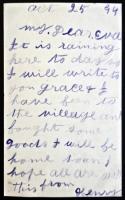 Oct. 25 94
my Dear Eva
It is raining
here to day so
I will write to
you grace & I
have been to
the village and
bought some
goods I will be
home soon I
hope all are well
this from
Henry